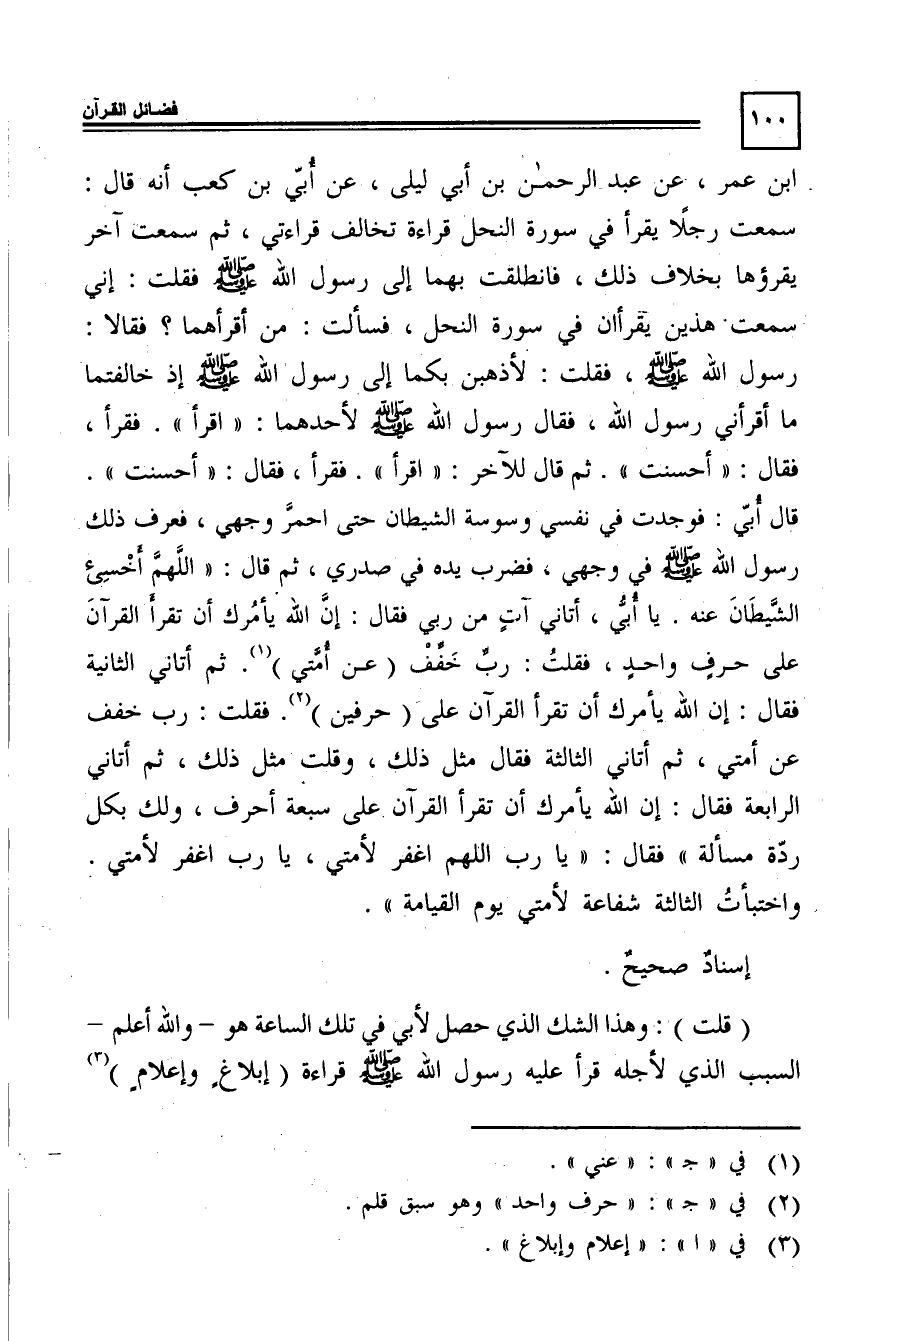 ١٠٠
فضائل القرآن
ابن عمر ، عن عبد الرحمٰن بن أبي ليلى ، عن أُبيّ بن كعب أنه قال :
سمعت رجلًا يقرأ في سورة النحل قراءة تخالف قراءتي ، ثم سمعت آخر
يقرؤها بخلاف ذلك ، فانطلقت بهما إلى رسول الله ﷺ فقلت : إني
سمعت هذين يقرأان في سورة النحل ، فسألت : من أقرأهما ؟ فقالا :
رسول الله ﷺ ، فقلت : لأذهبن بكما إلى رسول الله ﷺ إذ خالفتما
ما أقرأني رسول الله ، فقال رسول الله ﷺ لأحدهما : « اقرأ » . فقرأ ،
فقال : « أحسنت » . ثم قال للآخر : « اقرأ » . فقرأ ، فقال : « أحسنت » .
قال أُبيّ : فوجدت في نفسي وسوسة الشيطان حتى احمرَّ وجهي ، فعرف ذلك
رسول الله ﷺ في وجهي ، فضرب يده في صدري ، ثم قال : « اللَّهمَّ أَخْسِئ
الشَّيطَانَ عنه . يا أُبيُّ ، أتاني آتٍ من ربي فقال : إنَّ الله يأمُرك أن تقرأَ القرآنَ
على حرفٍ واحدٍ ، فقلتُ : ربِّ خَفِّفْ ( عن أُمَّتي )(١). ثم أتاني الثانية
فقال : إن الله يأمرك أن تقرأ القرآن على ( حرفين )(٢). فقلت : رب خفف
عن أمتي ، ثم أتاني الثالثة فقال مثل ذلك ، وقلت مثل ذلك ، ثم أتاني
الرابعة فقال : إن الله يأمرك أن تقرأ القرآن على سبعة أحرف ، ولك بكل
ردّة مسألة » فقال : « يا رب اللهم اغفر لأمتي ، يا رب اغفر لأمتي .
واختبأتُ الثالثة شفاعة لأمتي يوم القيامة » .
إسنادٌ صحيحٌ .
( قلت ) : وهذا الشك الذي حصل لأبي في تلك الساعة هو – والله أعلم –
السبب الذي لأجله قرأ عليه رسول الله ﷺ قراءة ( إبلاغٍ وإعلامٍ )(٣)
(١) في « جـ » : « عني » .
(٢) في « جـ » : « حرف واحد » وهو سبق قلم .
(٣) في « ا » : « إعلام وإبلاغ » .